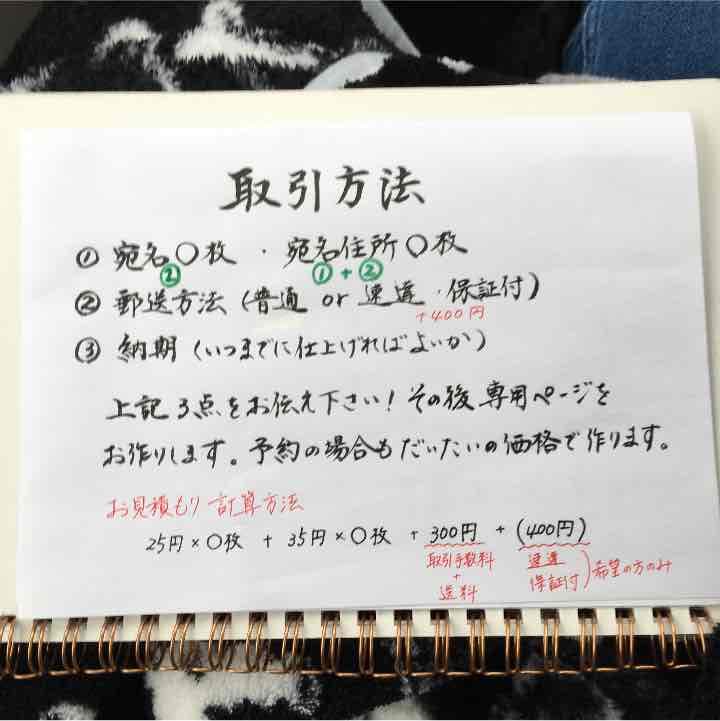 取引方法
① 宛名〇枚 ・ 宛名住所〇枚
② ①+②
② 郵送方法 (普通 or 速達・保証付)
+400円
③ 納期 (いつまでに仕上げればよいか)
上記3点をお伝え下さい! その後専用ページを
お作りします。予約の場合もだいたいの価格で作ります。
お見積もり計算方法
25円×〇枚 + 35円×〇枚 + 300円 + (400円)
取引手数料
+
送料
速達
保証付
) 希望の方のみ